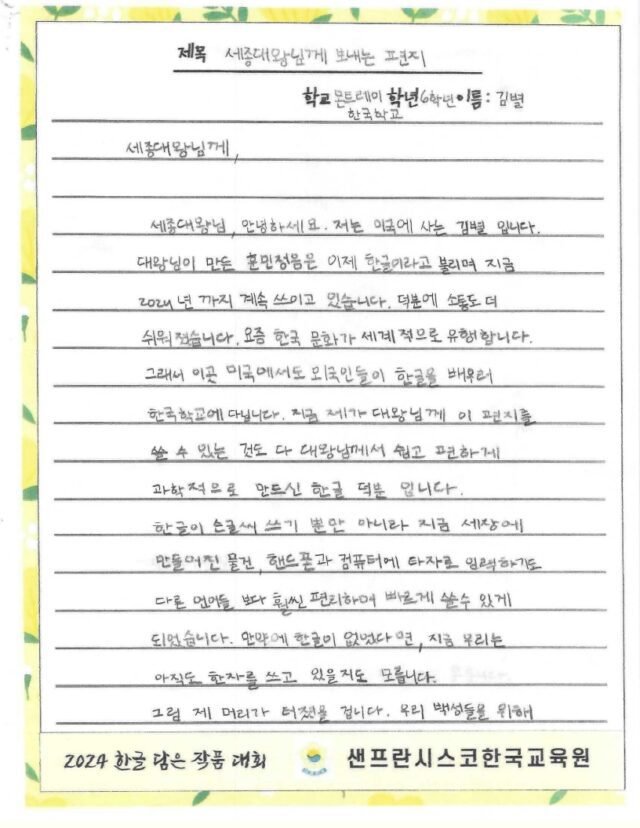 제목 세종대왕님께 보내는 편지
학교 몬트레이 학년 6학년 이름: 김별
한국학교
세종대왕님께,
세종대왕님, 안녕하세요. 저는 미국에 사는 김별 입니다.
대왕님이 만든 훈민정음은 이제 한글이라고 불리며 지금
2024년 까지 계속 쓰이고 있습니다. 덕분에 소통도 더
쉬워졌습니다. 요즘 한국 문화가 세계적으로 유행합니다.
그래서 이곳 미국에서도 외국인들이 한글을 배우러
한국학교에 다닙니다. 지금 제가 대왕님께 이 편지를
쓸 수 있는 것도 다 대왕님께서 쉽고 편하게
과학적으로 만드신 한글 덕분 입니다.
한글이 손글씨 쓰기 뿐만 아니라 지금 세장에
만들어진 물건, 핸드폰과 컴퓨터에 타자로 입력하기도
다른 언어들 보다 훨씬 편리하며 빠르게 쓸수 있게
되었습니다. 만약에 한글이 없었다 면, 지금 우리는
아직도 한자를 쓰고 있을지도 모릅니다.
그럼 제 머리가 터졌을 겁니다. 우리 백성들을 위해
2024 한글 담은 작품 대회
샌프란시스코한국교육원